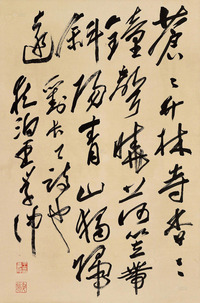 蒼〻竹林寺杳〻
鐘聲晚荷笠帶
斜陽青山獨歸
遠 劉長卿詩也
夜泊王學仲